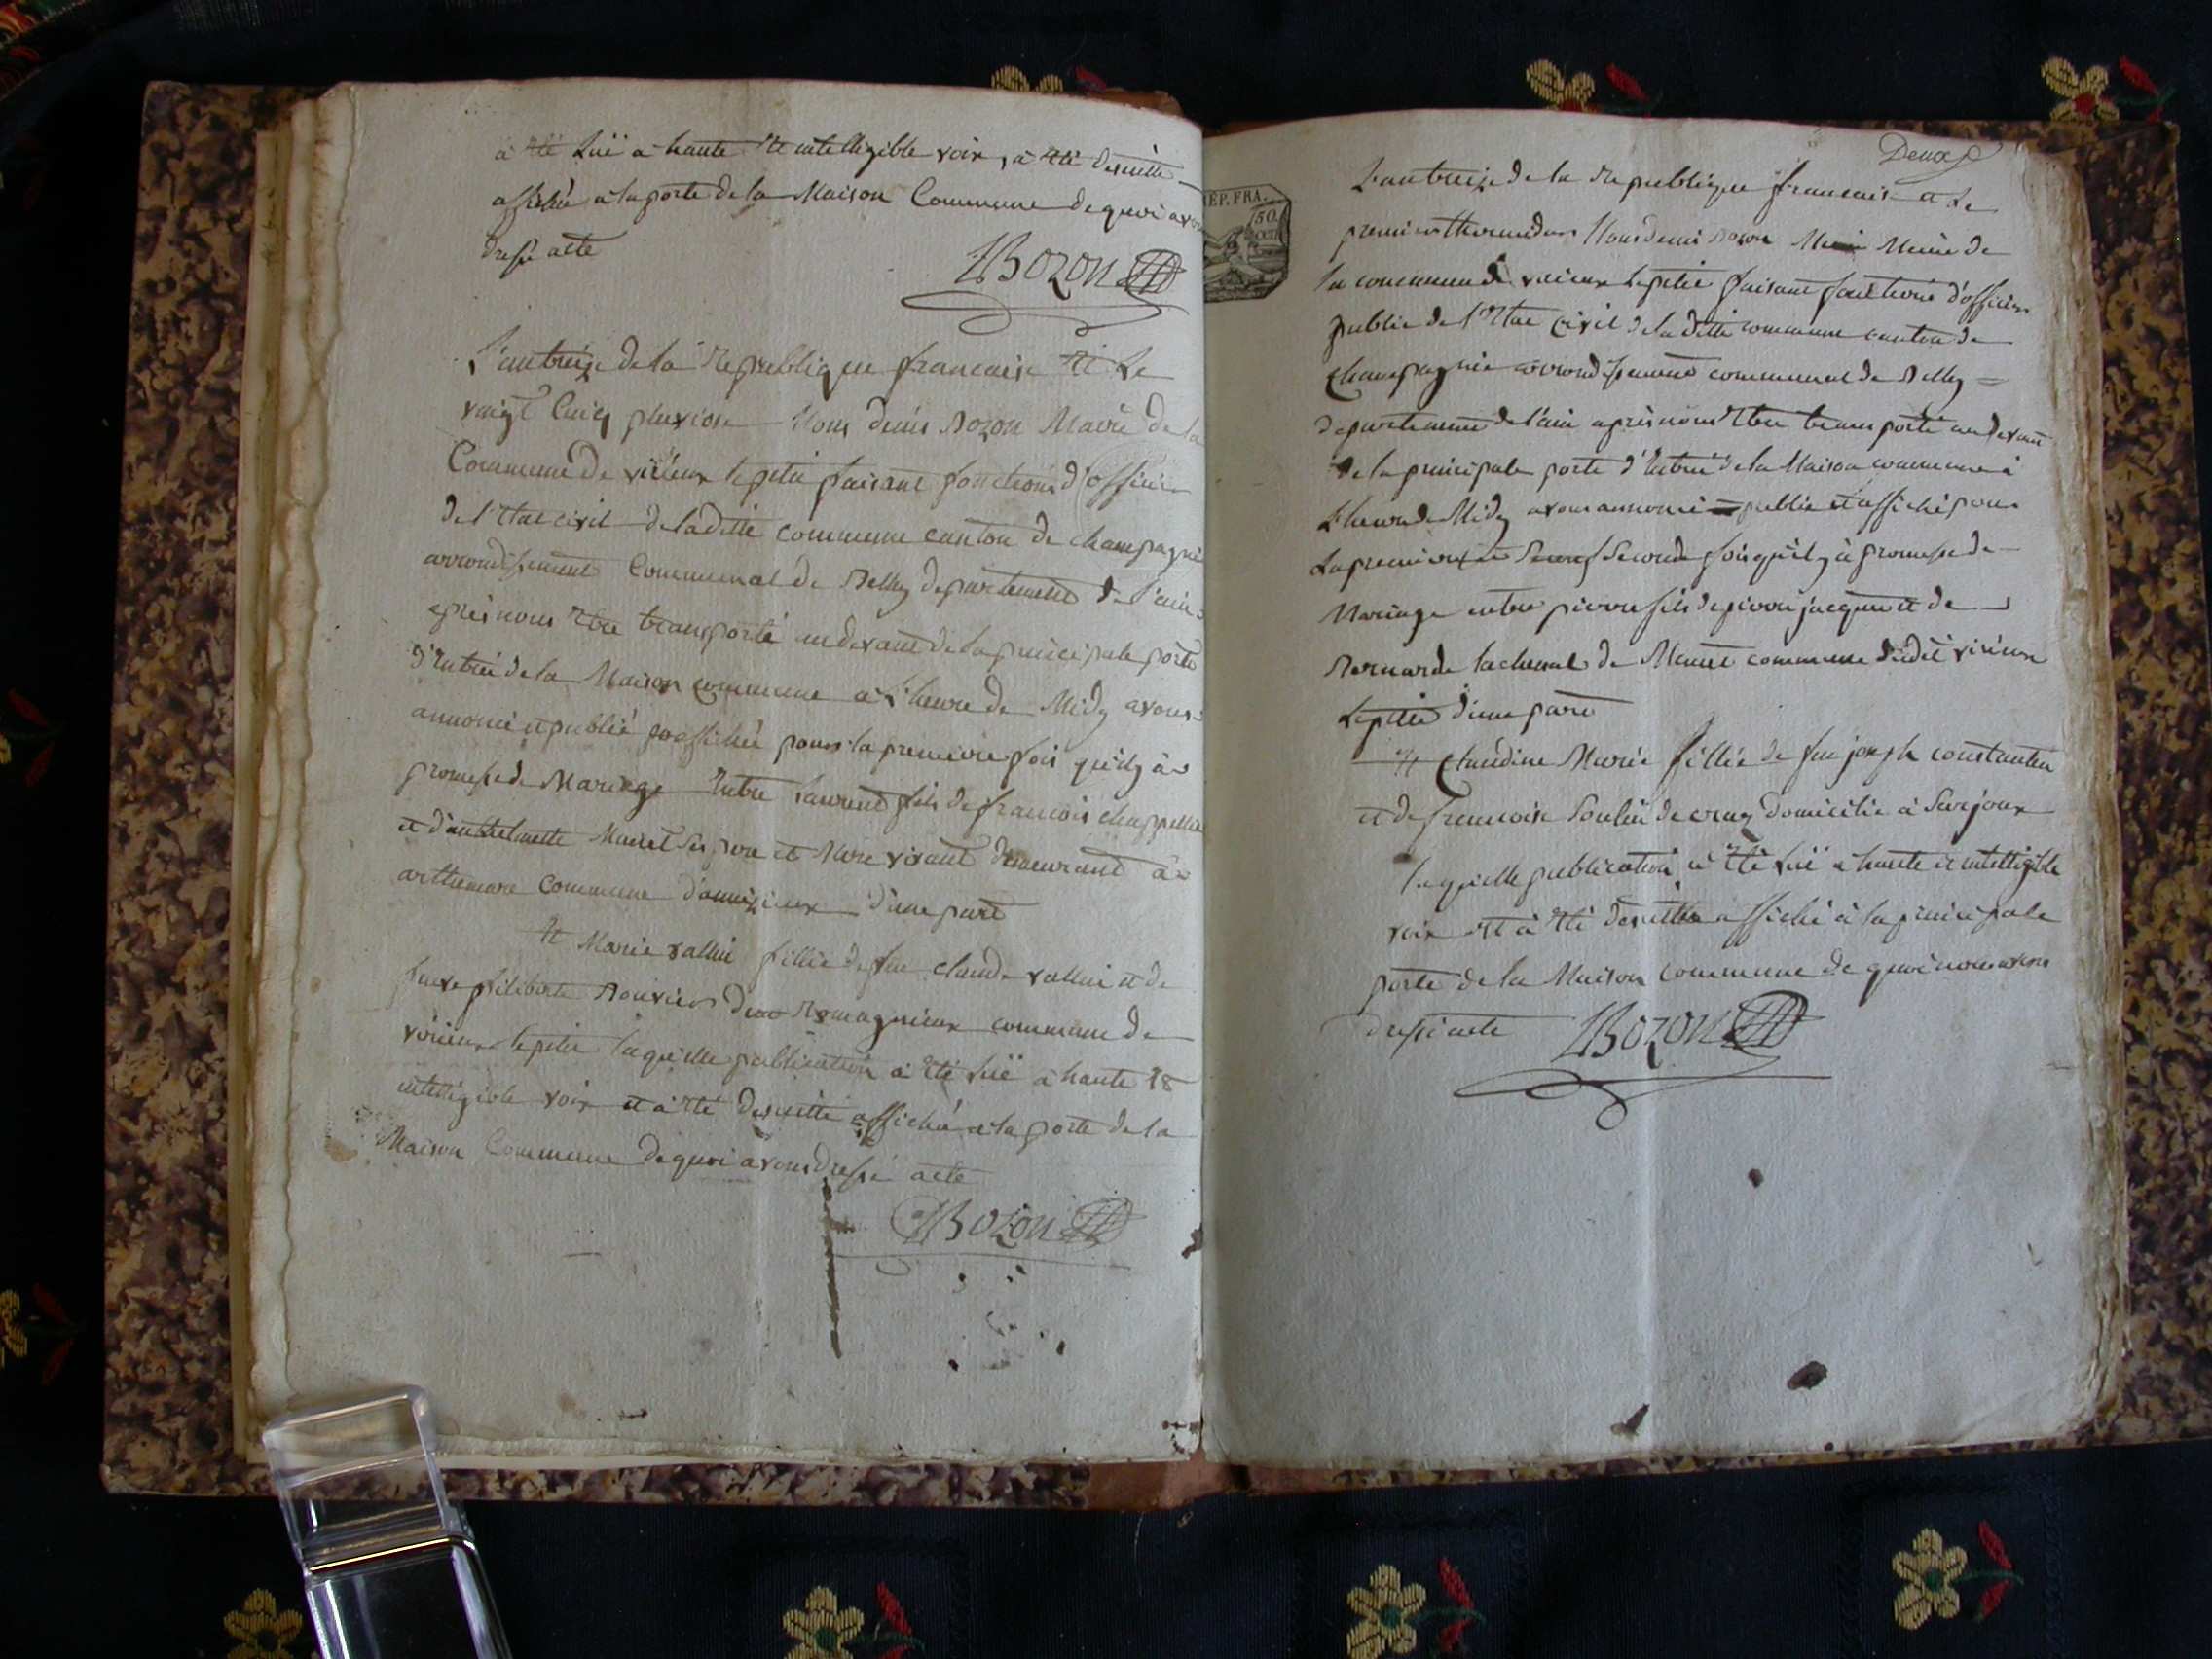 a été luë a haute et intelligible voix, a été de suitte
affichée a la porte de la Maison Commune de quoi avons
dressé acte
Bozon
L'an treize de la republique francaise et le
vaingt Cinq pluviose Nous denis Bozon Maire de la
Commune de virieux le petit faisant fonctions d'officier
de l'Etat civil de la ditte commune canton de champagne
arrondissement Communal de Belley departement de l'ain
apres nous etre transporté au devant de la principale porte
d'entrée de la Maison commune a l'heure de Midy avons
annoncé et publié affichée pour la premiere fois qu'il y à
promesse de Mariage Entre laurent fils de francois chappelle
et d'anthelmette ses pere et Mere vivant demeurant à
arthemare Commune d'ameizieux d'une part
Et Marie vallin fillie de feu claude vallin et de
feue philiberte Bouvier de Romagnieux commune de
virieux le petit laquelle publication a été luë a haute et
intelligible voix et a été de suitte affichée a la porte de la
Maison Commune de quoi avons dressé acte
Bozon
Deux
RÉP. FRA.
50
L'an treize de la republique francaise et le
premier thermidor Nous denis Bozon Maire de
la commune de virieux le petit faisant fonctions d'officier
public de l'Etat civil de la ditte commune canton de
champagnie arrondissement communal de Belley
departement de l'ain apres nous Etre transporté au devant
de la principale porte d'Entrée de la Maison commune à
L'heure de Midy avons annoncé publié et affiché pour
La premiere et Seconde fois qu'il y à promesse de
Mariage entre pierre fils de pierre jacquet et de
Bernarde lachenal de commune dudit virieux
Le petit d'une part
Et Claudine Marie fillie de feu joseph constantin
et de francoise de domicilié à
laquelle publication a été luë a haute et intelligible
voix et à été de suitte affiché à la principale
porte de la Maison commune de quoi nous avons
dressé acte Bozon